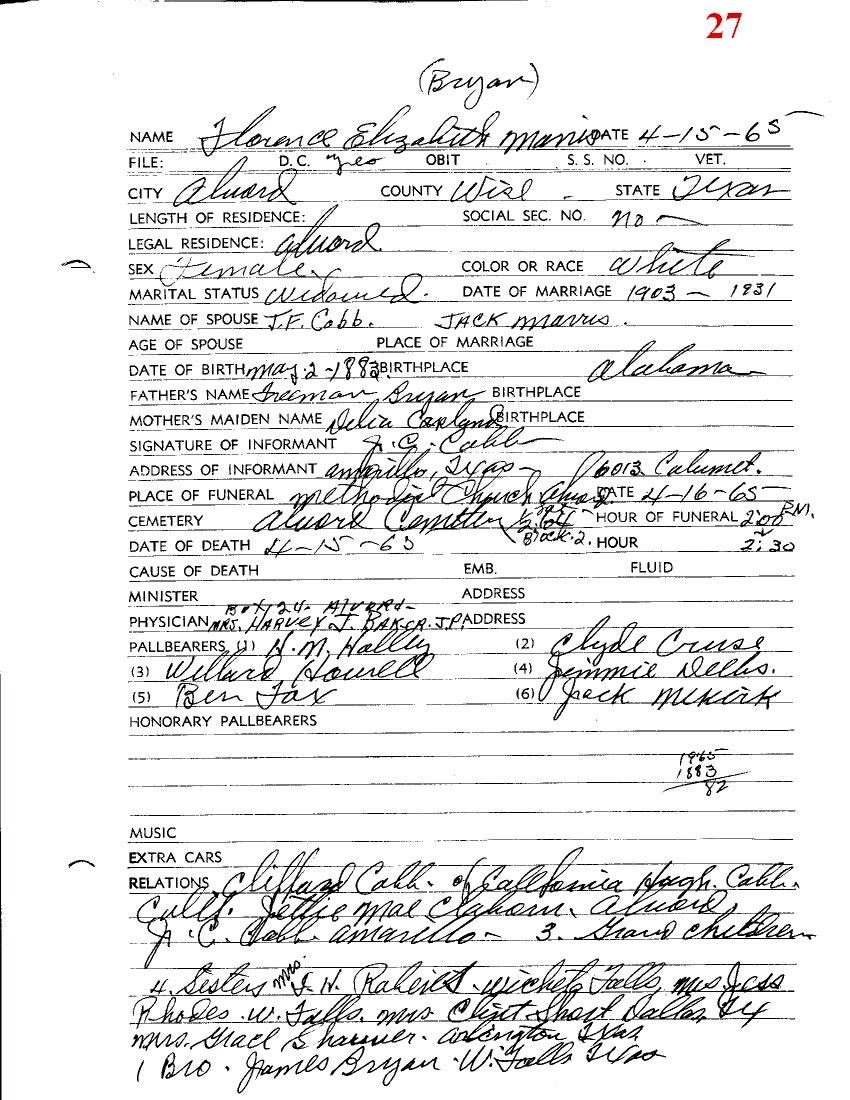 27
(Bryan)
NAME Florence Elizabeth Morris DATE 4-15-65
FILE: D.C. yes OBIT S. S. NO. VET.
CITY Alvord COUNTY Wise STATE Texas
LENGTH OF RESIDENCE: SOCIAL SEC. NO. no
LEGAL RESIDENCE: Alvord
SEX Female COLOR OR RACE White
MARITAL STATUS Widowed. DATE OF MARRIAGE 1903 - 1931
NAME OF SPOUSE J.F. Cobb. JACK Morris.
AGE OF SPOUSE PLACE OF MARRIAGE
DATE OF BIRTH May-2-1883 BIRTHPLACE Alabama
FATHER'S NAME Freeman Bryan BIRTHPLACE
MOTHER'S MAIDEN NAME Delia BIRTHPLACE
SIGNATURE OF INFORMANT J.C. Cobb
ADDRESS OF INFORMANT Amarillo, Texas - 6013 Calumet.
PLACE OF FUNERAL Methodist Church Alvord DATE 4-16-65
CEMETERY Alvord Cemetery Block.2. HOUR OF FUNERAL 2:00 P.M.
DATE OF DEATH 4-15-65 HOUR 2:30
CAUSE OF DEATH EMB. FLUID
MINISTER ADDRESS
Box 124- Alvord-
PHYSICIAN MRS. HARVEY J. BAKER. J.P. ADDRESS
PALLBEARERS (1) H.M. Halley (2) Clyde Cruse
(3) Willard Howell (4) Jimmie Deebs.
(5) Ben Fox (6) Jack McKirk
HONORARY PALLBEARERS
1965
1883
82
MUSIC
EXTRA CARS
RELATIONS Cliffard Cobb. of California Hugh. Cobb.
Calif. Jettie Mae Alvord,
J.C. Cobb Amarillo - 3. Grand children
4. Sisters Mrs. J. H. Wichita Falls, Mrs Jess
Rhodes. W. Falls. Mrs. Clint Short Dallas, Tex
Mrs. Grace Arlington Texas
1 Bro. James Bryan. W. Falls Texas